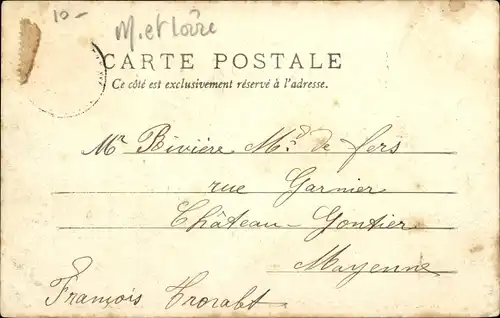 10-
M. et Loire
CARTE POSTALE
Ce côté est exclusivement réservé à l'adresse.
Mr Rivière Md. de fers
rue Garnier
Château-Gontier
Mayenne
François